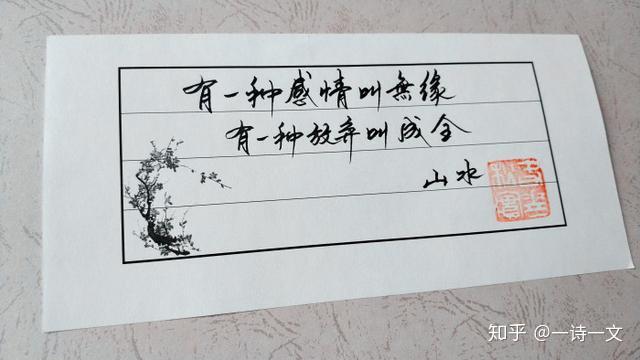 有一种感情叫無缘
有一种放弃叫成全
山水
知乎 @一诗一文